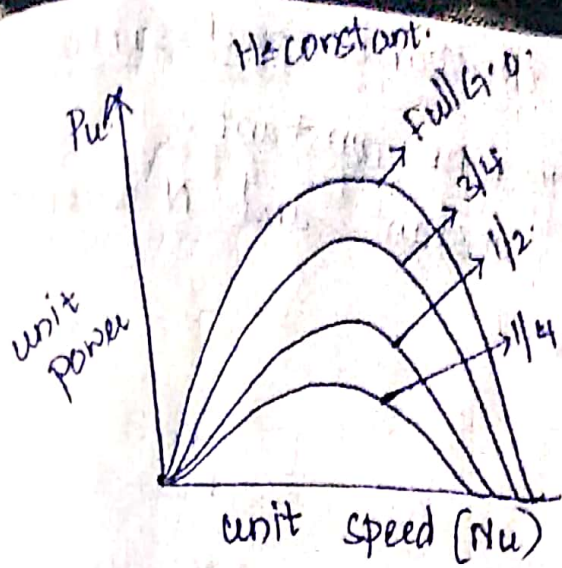 H=constant.
Pu
Full G.O.
3/4
1/2.
1/4
unit
power
unit speed (Nu)